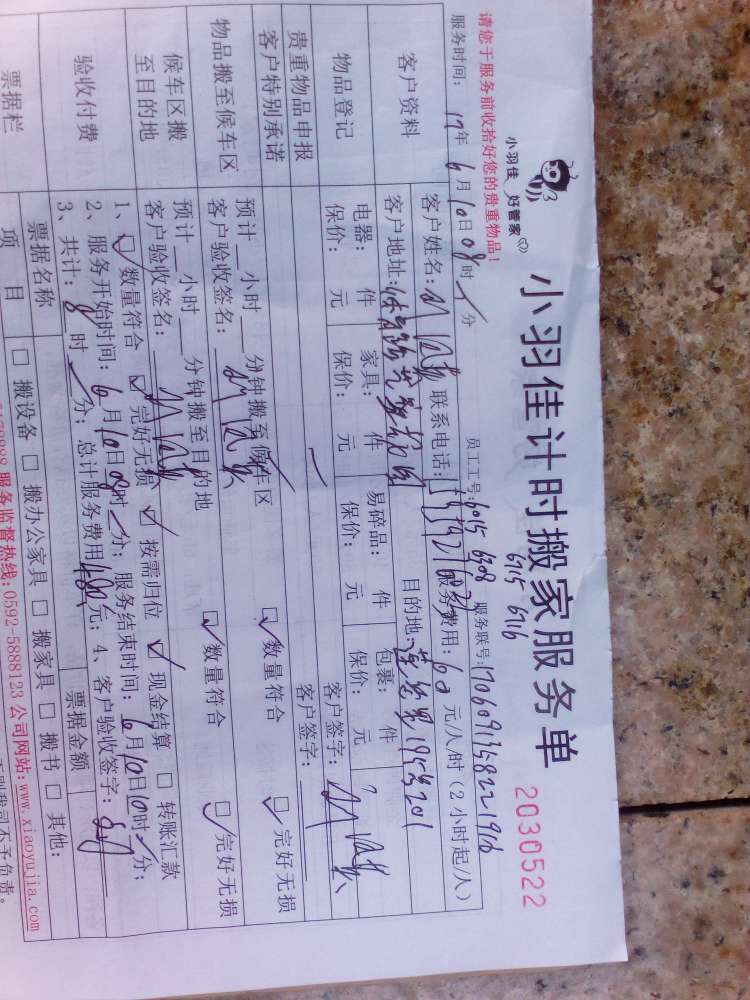 小羽佳 好管家
小羽佳计时搬家服务单
2030522
请您于服务前收拾好您的贵重物品！
员工工号: 6015 6308
6715 6716
服务联号: 1706091358221916
服务时间: 17年 6月 10日 08时 分
服务费用: 60 元/人/时 (2小时起/人)
客户资料
客户姓名:
联系电话:
客户地址:
目的地:
物品登记
电器: 件 家具: 件 易碎品: 件 包裹: 件
保价: 元 保价: 元 保价: 元 保价: 元
客户签字:
贵重物品申报
客户特别承诺
客户签字:
物品搬至候车区
预计 小时 分钟搬至候车区
客户验收签名:
数量符合 完好无损
候车区搬
至目的地
预计 小时 分钟搬至目的地
客户验收签名:
数量符合 完好无损
验收付费
1、数量符合 完好无损 按需归位 现金结算 转账汇款
2、服务开始时间: 6月10日08时 分; 服务结束时间: 6月10日10时 分;
3、共计: 8时 分; 总计服务费用480元; 4、客户验收签字:
票据栏
票据名称
票据金额
项 目
搬设备 搬办公家具 搬家具 搬书 其他:
服务监督热线: 0592-5888123 公司网站: www.xiaoyujia.com
否则我司不予负责。